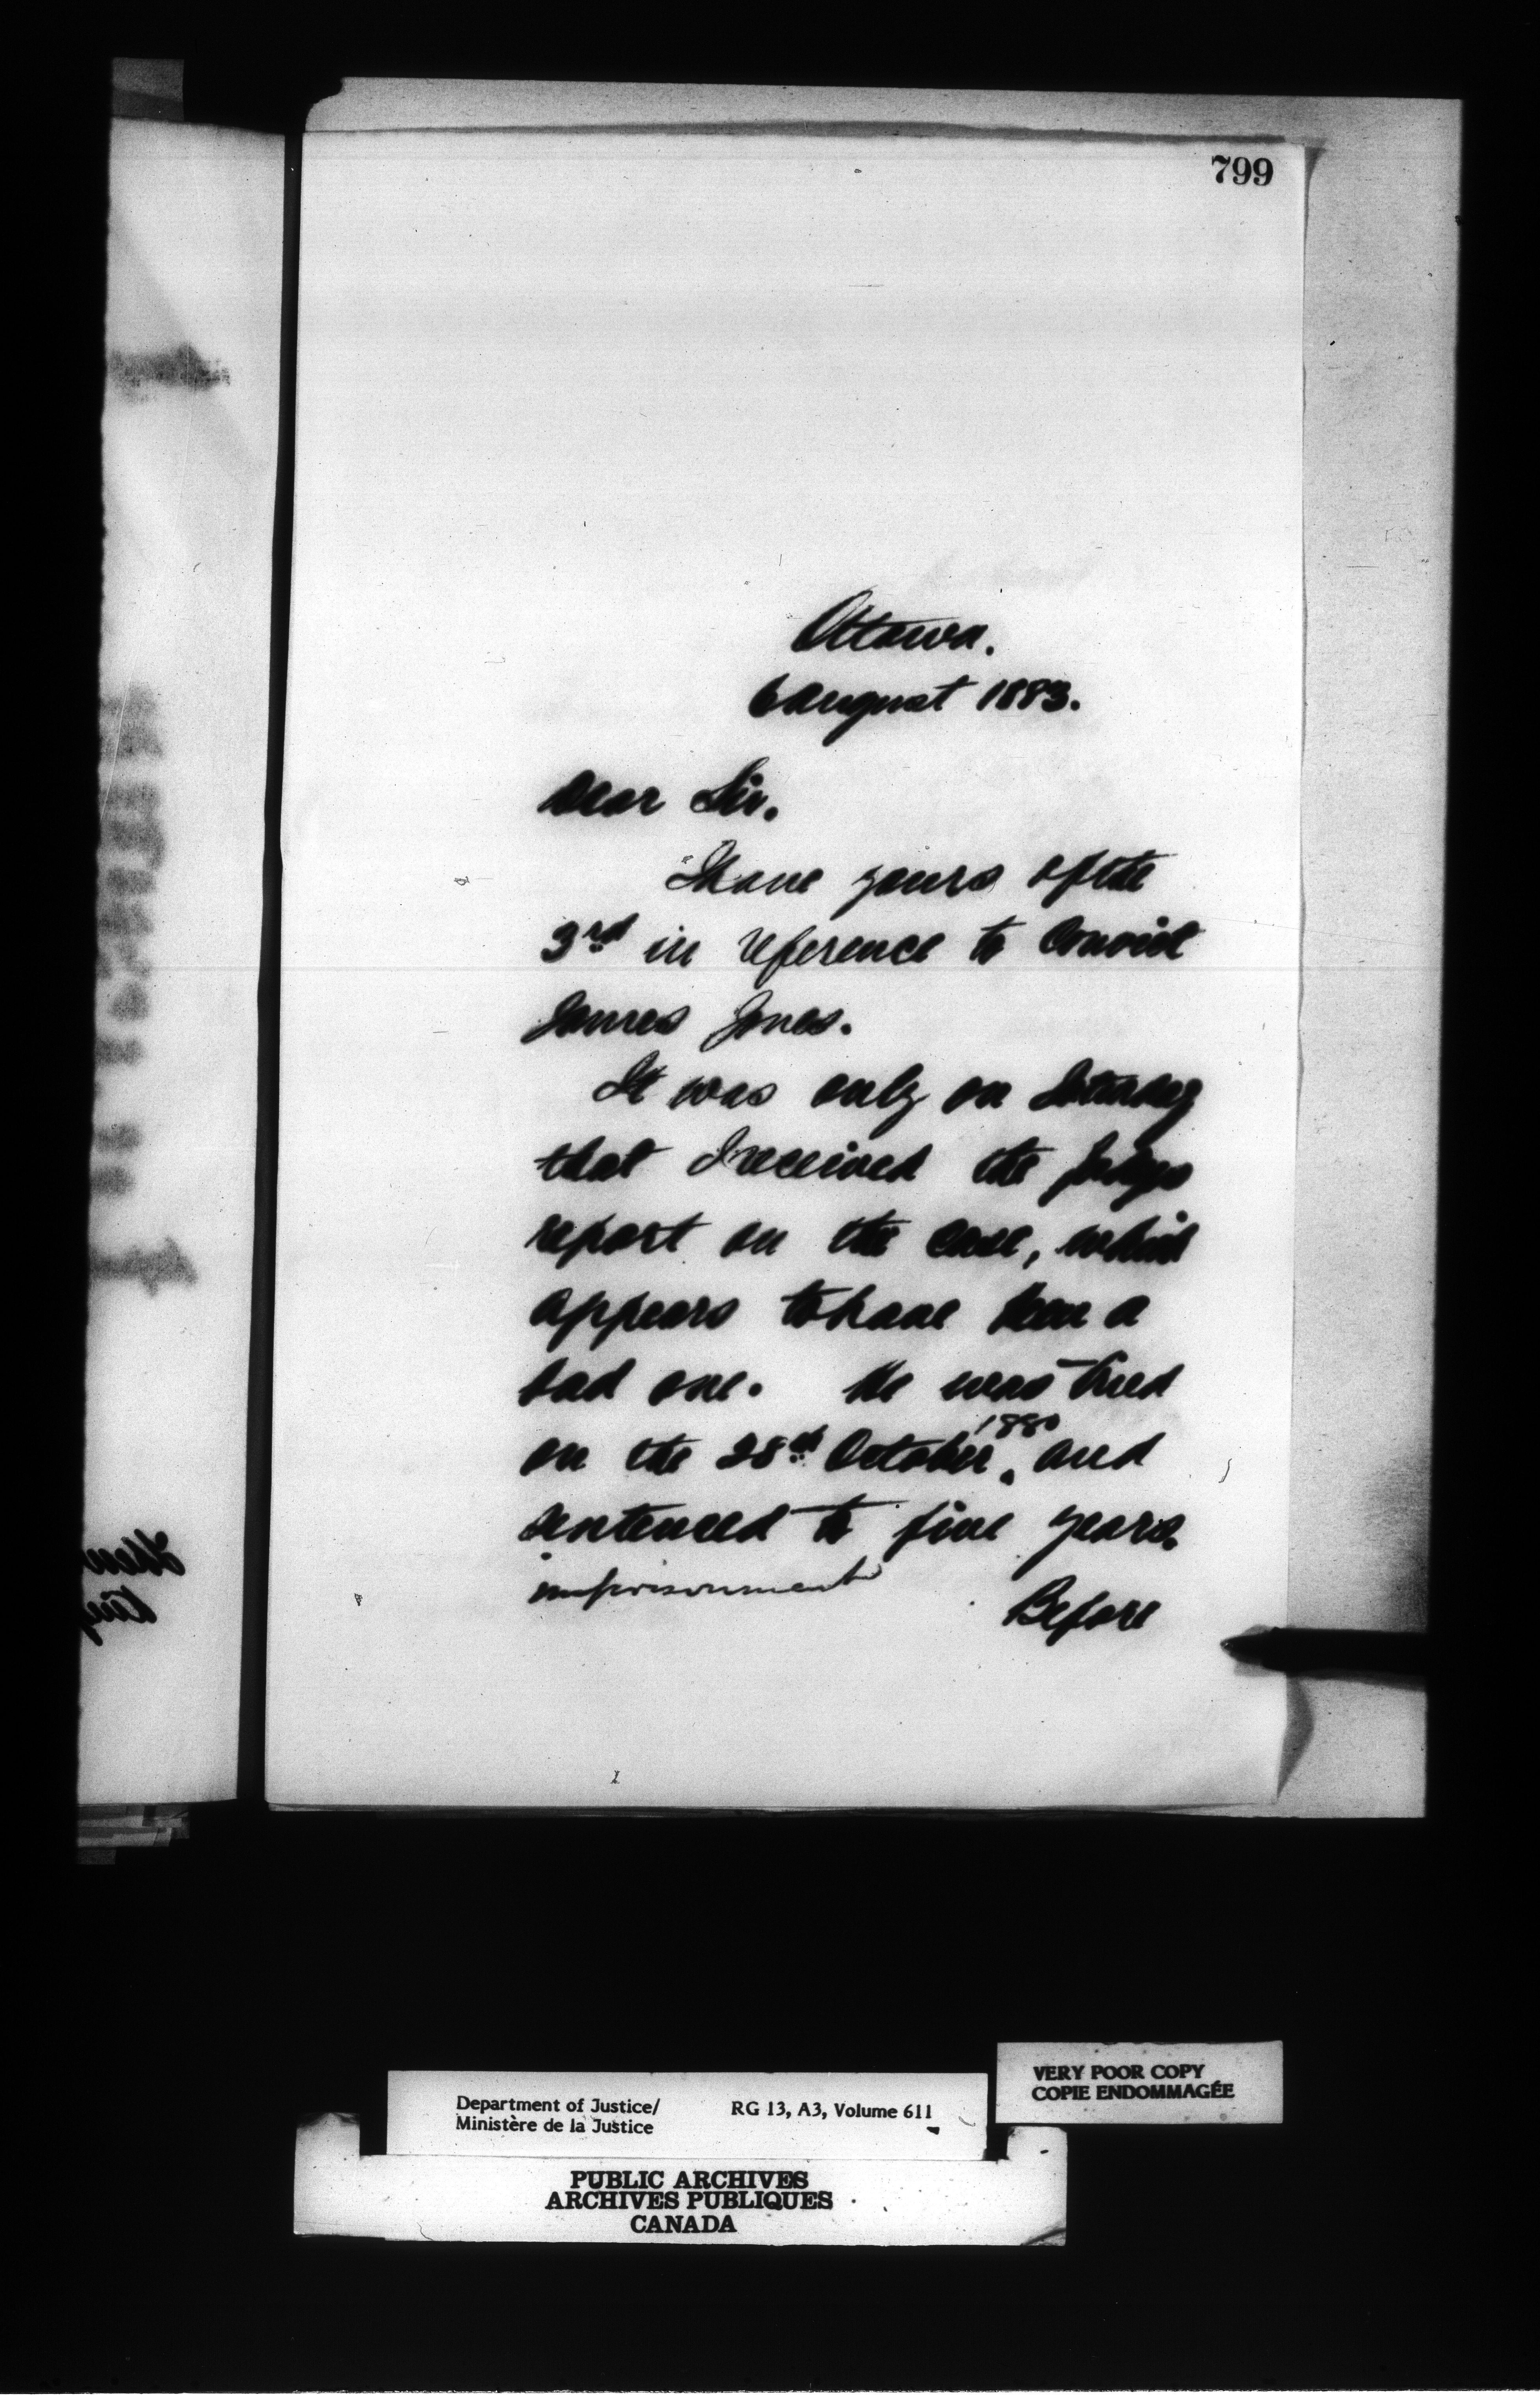 799
Ottawa.
6 August 1883.
Dear Sir.
I have yours of the
3rd in reference to Convict
James Jones.
It was only on Saturday
that I received the Judges
report on the case, which
appears to have been a
bad one. He was tried
on the 28th October 1880, and
sentenced to five years.
imprisonment
Before
VERY POOR COPY
COPIE ENDOMMAGÉE
Department of Justice/
Ministère de la Justice
RG 13, A3, Volume 611
PUBLIC ARCHIVES
ARCHIVES PUBLIQUES
CANADA